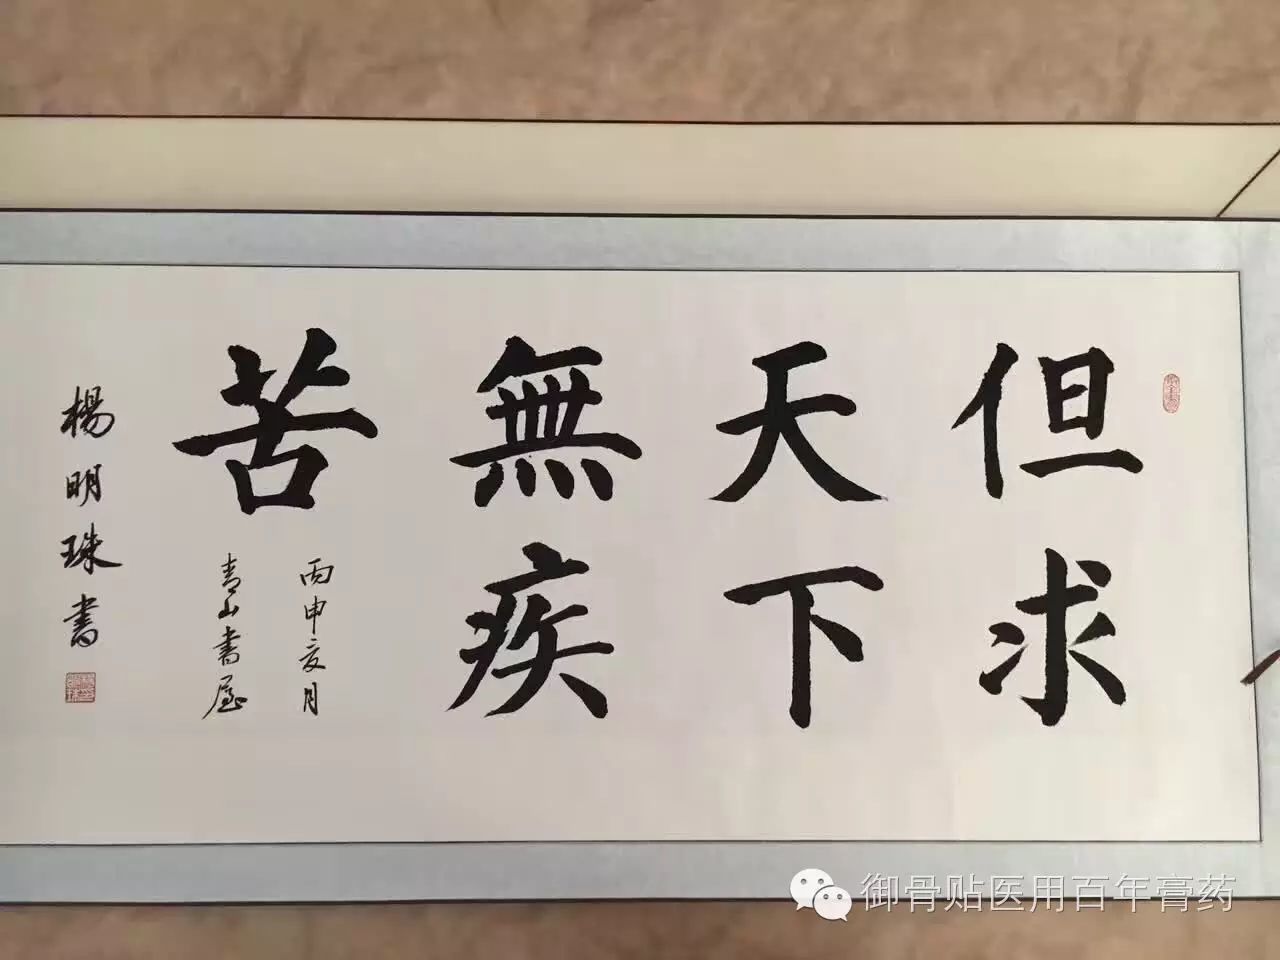 但求
天下
無疾
苦
丙申亥月
青山書屋
楊明珠書
御骨贴医用百年膏药